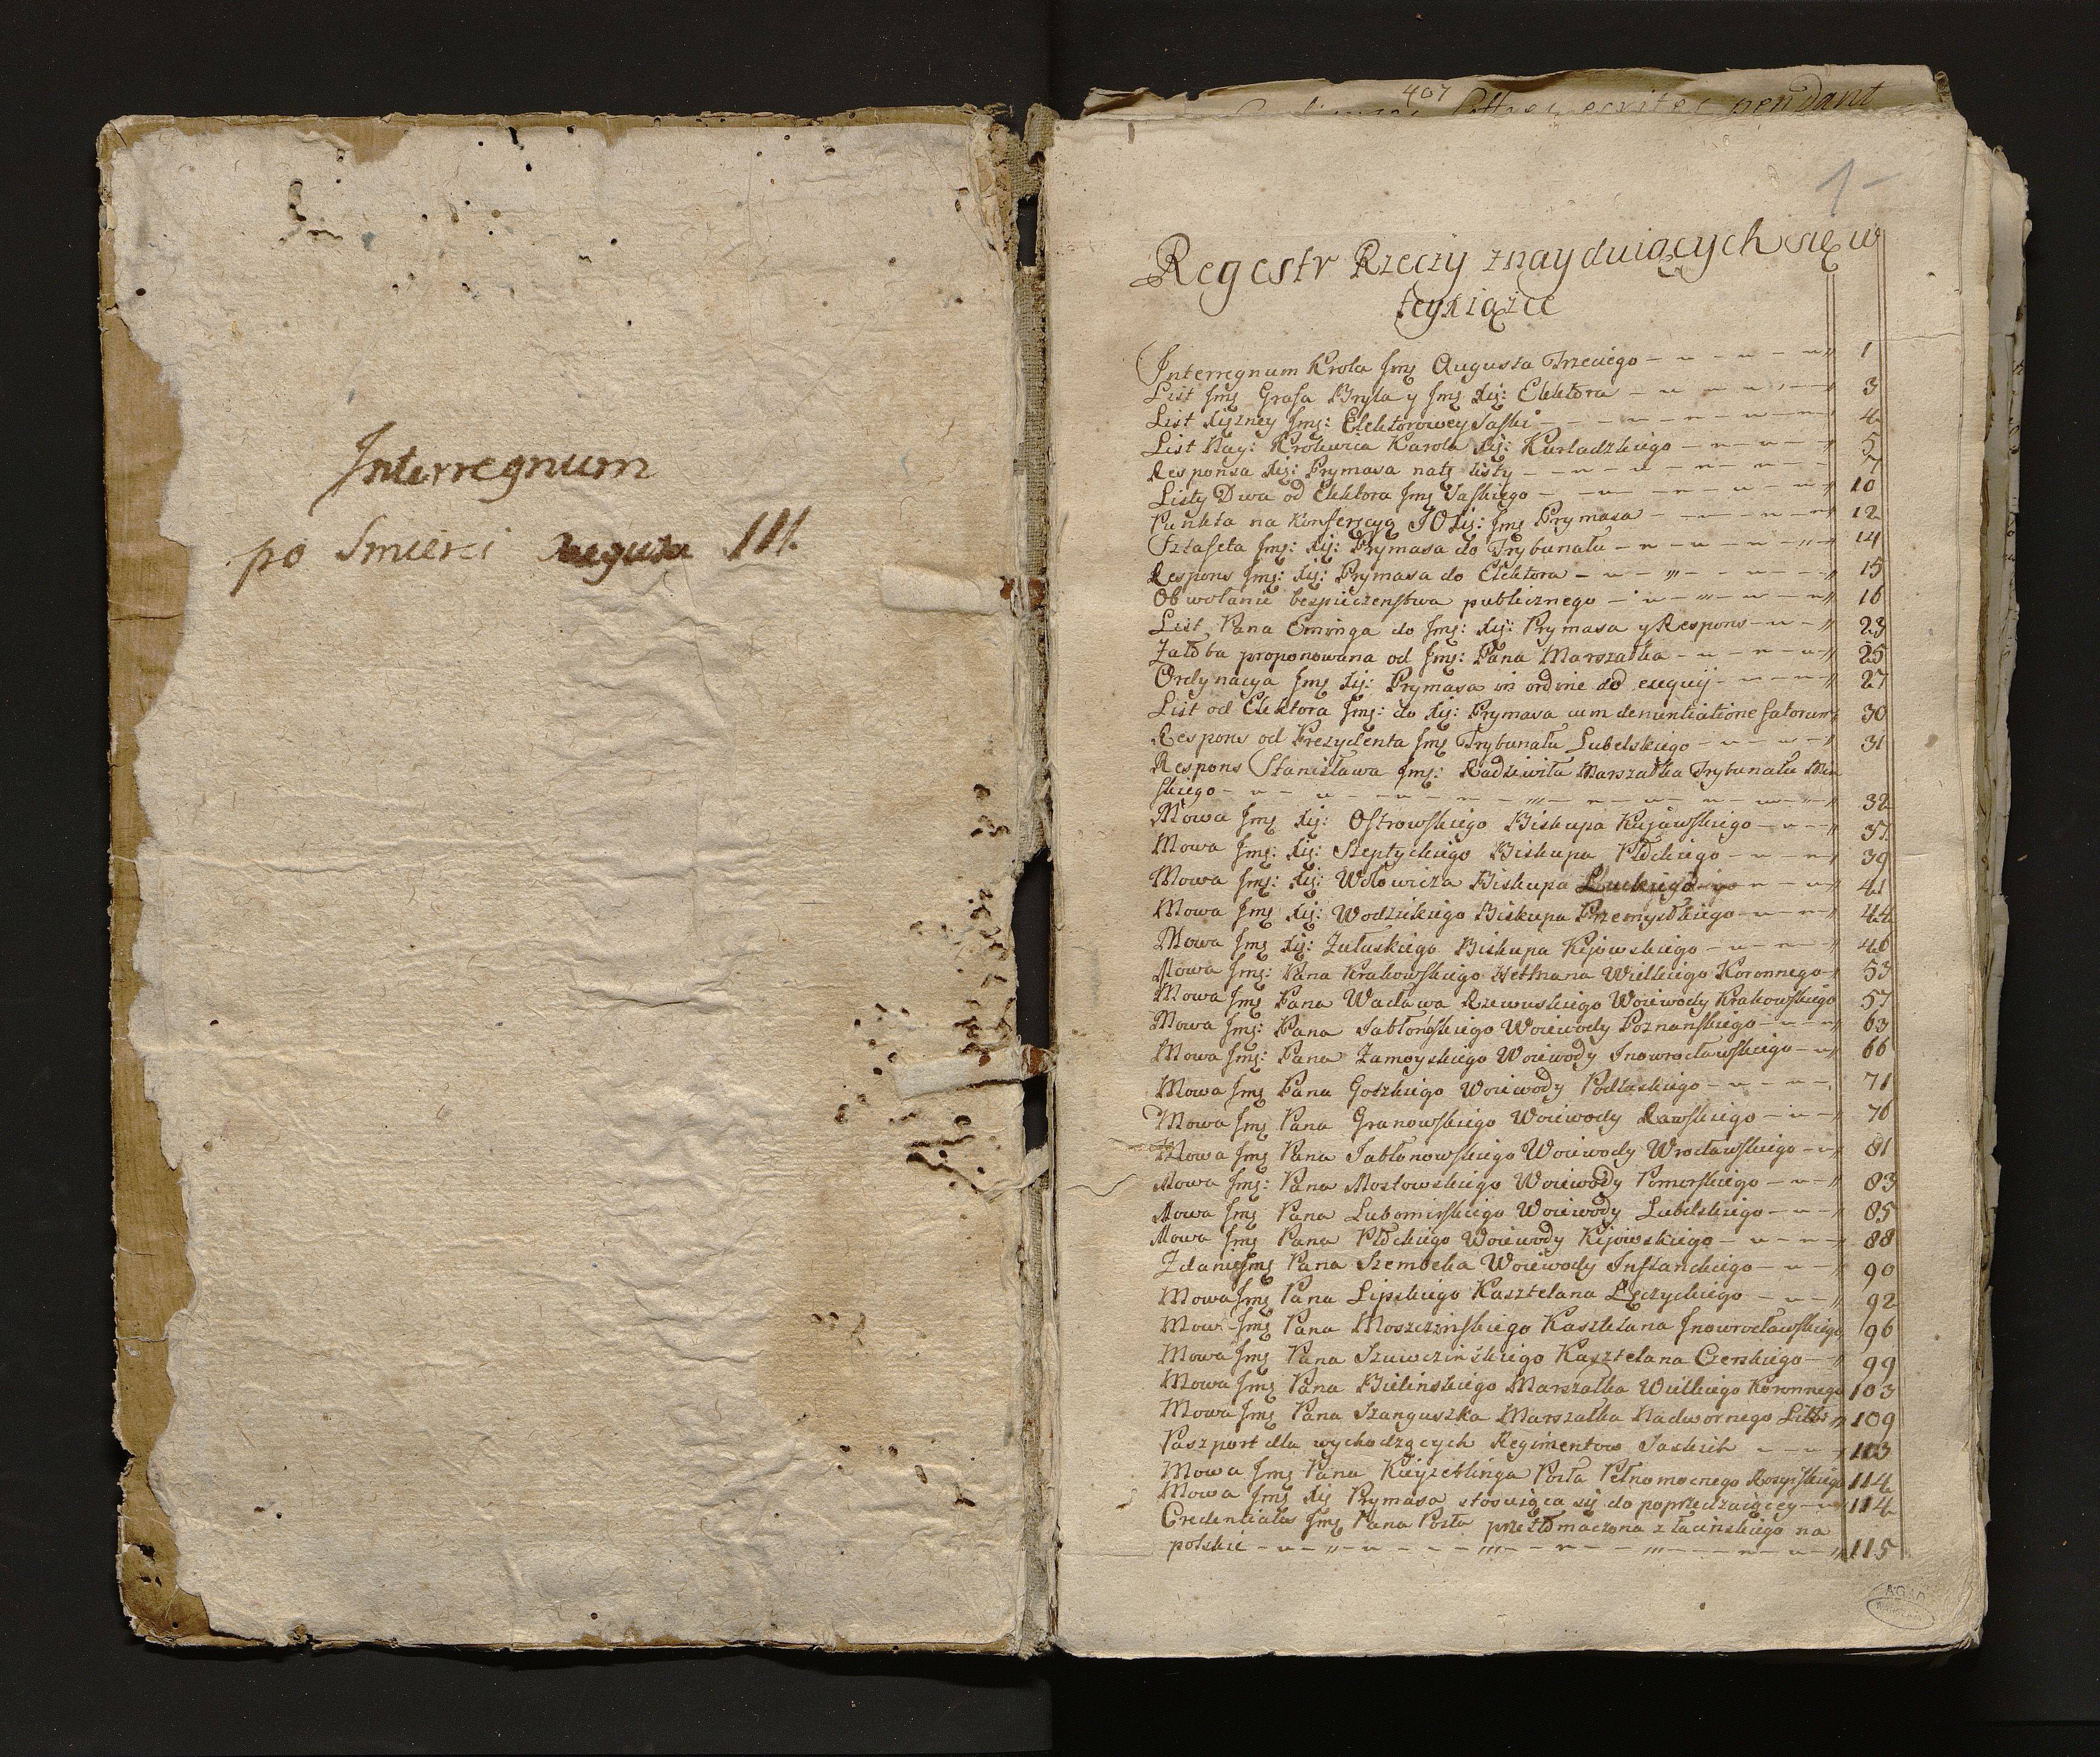 Interregnum
po Smierci Augusta III.
407
ecrites pendant
1
Regestr Rzeczy znayduiących się w
tey xiążce
Interregnum Krola Jmę Augusta Trzeciego 1
List Jmę Grafa Bryla y Jmę Xię: Elektora 3
List Xiężney Jmę: Elektorowey Saskiey 4
List Nay: Krolewica Karola Xię: Kurladzkiego 5
Responsa Xię: Prymasa na tę listy 7
Listy Dwa od Elektora Jmę Saskiego 10
Punkta na Konferęcyą JO Xię: Jmę Prymasa 12
Sztafeta Jmę: Xię: Prymasa do Trybunału 14
Respons Jmę: Xię: Prymasa do Elektora 15
Obwołanie bespieczenstwa publicznego 16
List Pana do Jmę: Xię: Prymasa y Respons 23
Załoba proponowana od Jmę: Pana Marszałka 25
Ordynacya Jmę Xię: Prymasa in ordine ad exequij 27
List od Elektora Jmę: do Xię: Prymasa cum denuntiatione fatorum 30
Respons od Prezydenta Jmę Trybunału Lubelskiego 31
Respons Stanisława Jmę: Radziwiła Marszałka Trybunału Min
skiego 32
Mowa Jmę Xię: Ostrowskiego Biskupa Kujawskiego 37
Mowa Jmę: Xię: Szeptyckiego Biskupa Płockiego 39
Mowa Jmę: Xię: Wołowicza Biskupa Łuckiego 41
Mowa Jmę Xię: Wodzickiego Biskupa Przemyslkiego 44
Mowa Jmę Xię: Załuskiego Biskupa Kijowskiego 46
Mowa Jmę: Pana Krakowskiego Hetmana Wielkiego Koronnego 53
Mowa Jmę Pana Wacława Rzewuskiego Woiewody Krakowskiego 57
Mowa Jmę: Pana Jabłońskiego Woiewody Poznanskiego 63
Mowa Jmę: Pana Zamoyskiego Woiewody Inowrocławskiego 66
Mowa Jmę Pana Gozkiego Woiewody Podlaskiego 71
Mowa Jmę Pana Granowskiego Woiewody Rawskiego 76
Mowa Jmę Pana Jabłonowskiego Woiewody Wrocławskiego 81
Mowa Jmę: Pana Mostowskiego Woiewody Pomorskiego 83
Mowa Jmę Pana Lubomirskiego Woiewody Lubelskiego 85
Mowa Jmę Pana Płockiego Woiewody Kijowskiego 88
Zdanie Jmę Pana Szembeka Woiewody Inflanckiego 90
Mowa Jmę Pana Lipskiego Kasztelana Łęczyckiego 92
Mowa Jmę Pana Moszczinskiego Kasztelana Inowrocławskiego 96
Mowa Jmę Pana Kasztelana Czerskiego 99
Mowa Jmę Pana Bielinskiego Marszałka Wielkiego Koronnego 103
Mowa Jmę Pana Szanguszka Marszałka Nadwornego Litt: 109
Paszport dla wychodzących Regimentow Saskich 113
Mowa Jmę Pana Kieyzerlinga Posła Pełnomocnego Rosyiskiego 114
Mowa Jmę Xię Prymasa stosuiąca się do poprzedzaiącey 114
Credentiales Jmę Pana Posła przetłmaczona z łacinskiego na
polskie 115